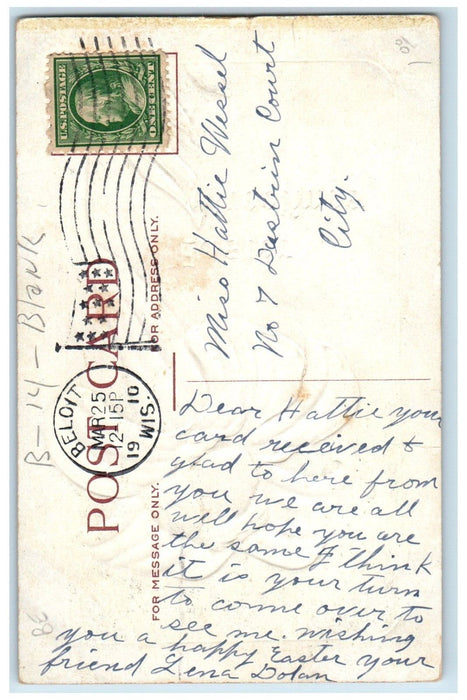 U.S. POSTAGE
ONE CENT
POST CARD
FOR ADDRESS ONLY.
FOR MESSAGE ONLY.
BELOIT
MAR 25
12-15P
19 10
WIS.
B-14-Blank
Miss Hattie Wessel
No 7 Court
City.
Dear Hattie your
card received &
glad to here from
you we are all
well hope you are
the same I think
it is your turn
to come over to
see me. wishing
you a happy Easter your
friend Lena Dolan